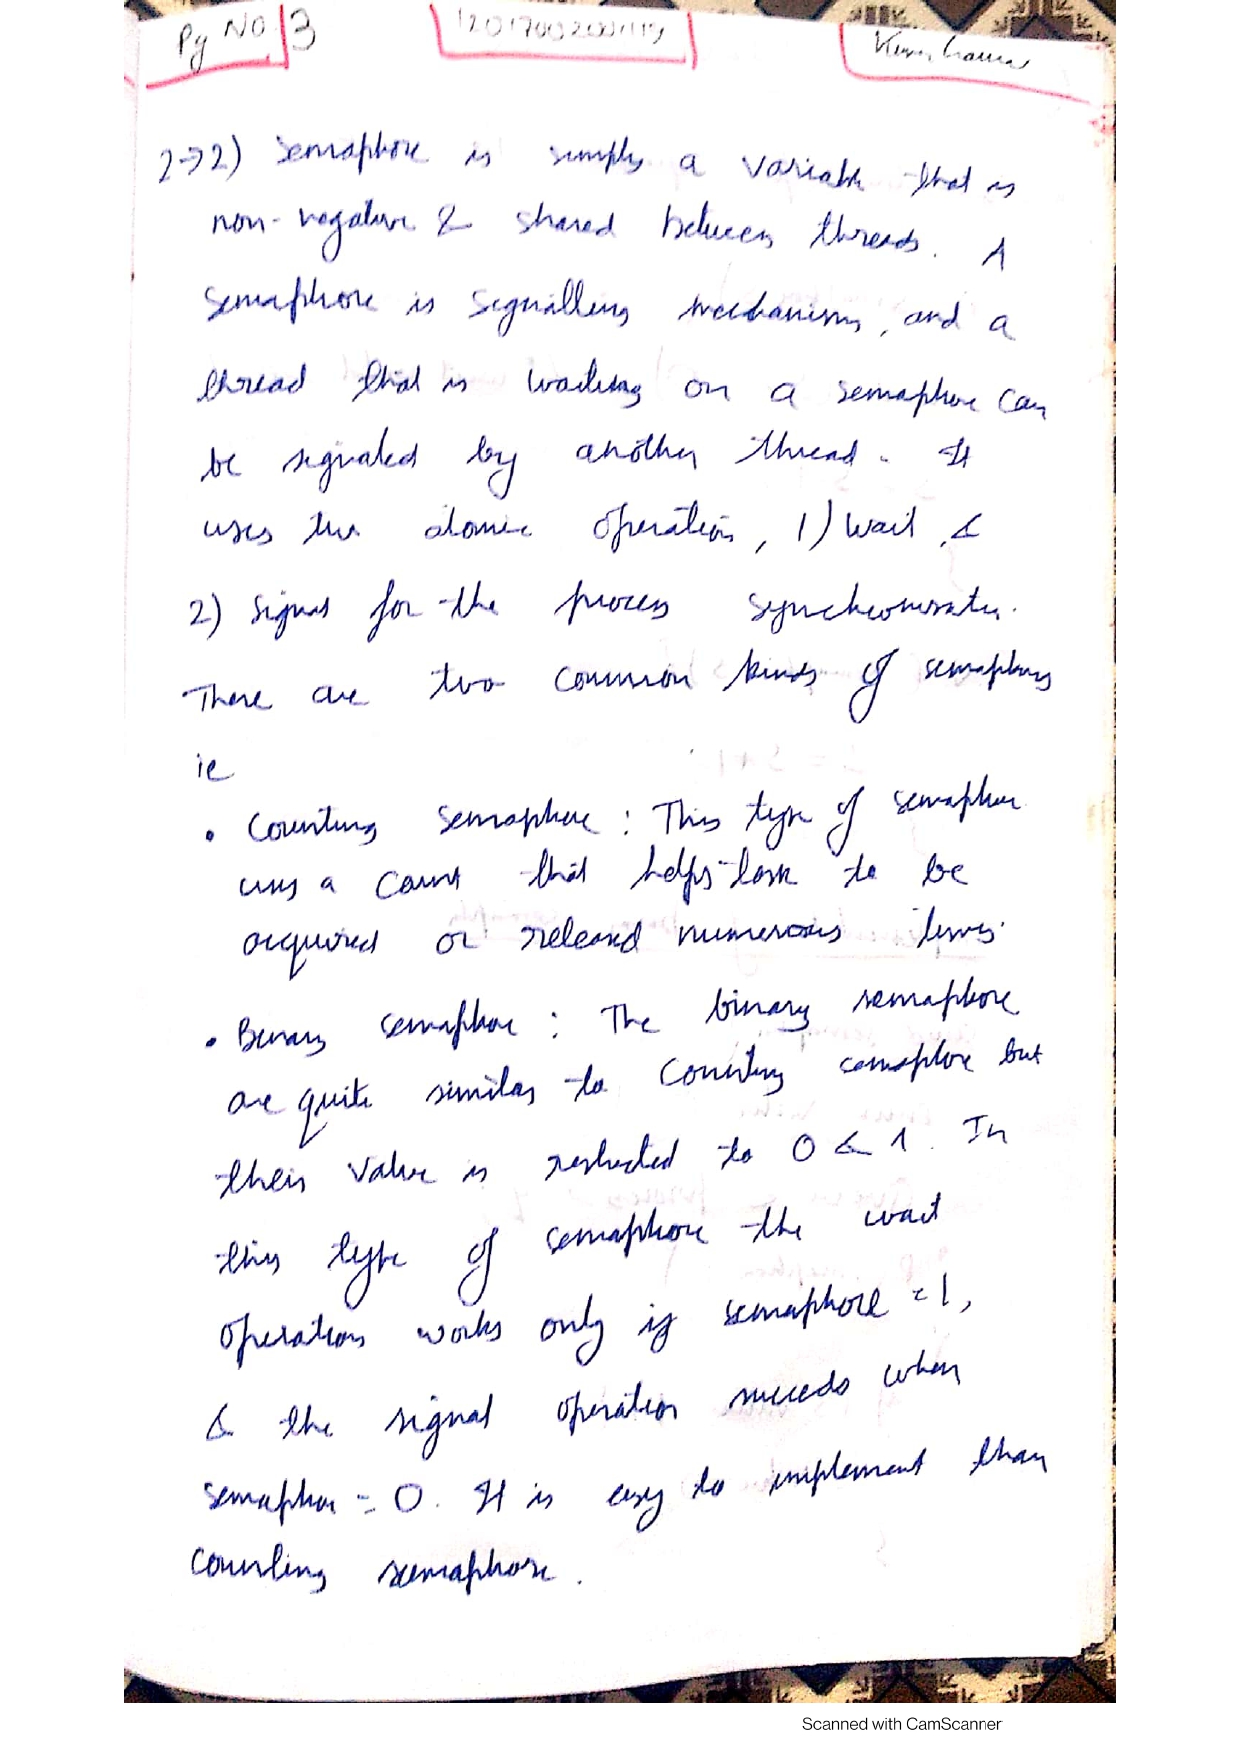 Pg NO 3
2→2) Semaphore is simply a variable that is
non-negative & shared between threads. A
semaphore is signalling mechanism, and a
thread that is waiting on a semaphore can
be signaled by another thread. It
uses two atomic operation, 1) wait, &
2) signal for the process synchronisation.
There are two common kinds of semaphores
ie
• Counting semaphore : This type of semaphore
uses a count that helps task to be
acquired or released numerous times.
• Binary semaphore : The binary semaphore
are quite similar to counting semaphore but
their value is restricted to 0 & 1. In
this type of semaphore the wait
operation works only if semaphore = 1,
& the signal operation succeeds when
semaphore = 0. It is easy to implement than
counting semaphore.
Scanned with CamScanner